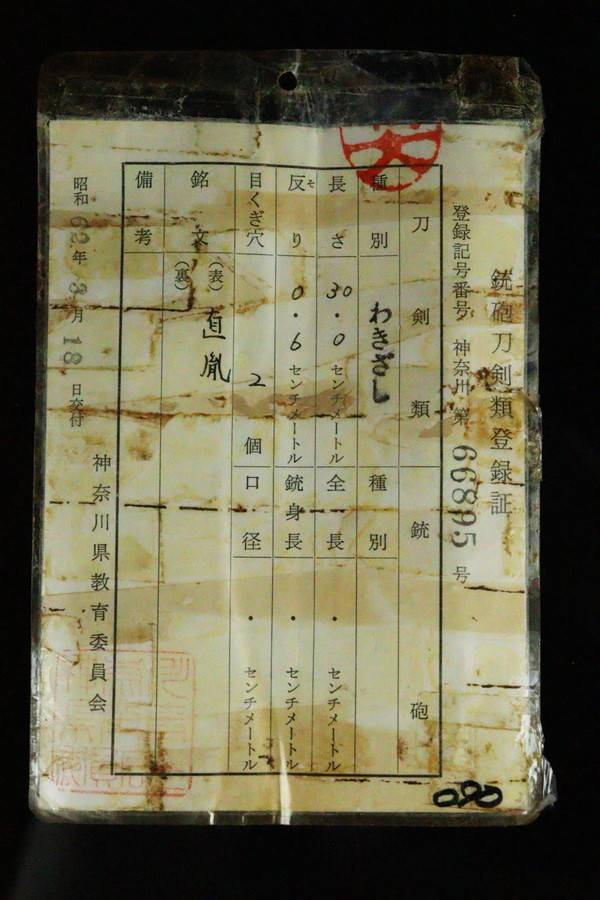 銃砲刀剣類登録証
登録記号番号 神奈川 第 66895 号
刀剣類 銃砲
種別 わきざし 種別
長さ 30・0 センチメートル 全長 ・ センチメートル
反り そ 0・6 センチメートル 銃身長 ・ センチメートル
目くぎ穴 2 個 口径 ・ センチメートル
銘文 (表) 直胤
(裏)
備考
昭和 62 年 3 月 18 日交付
神奈川県教育委員会